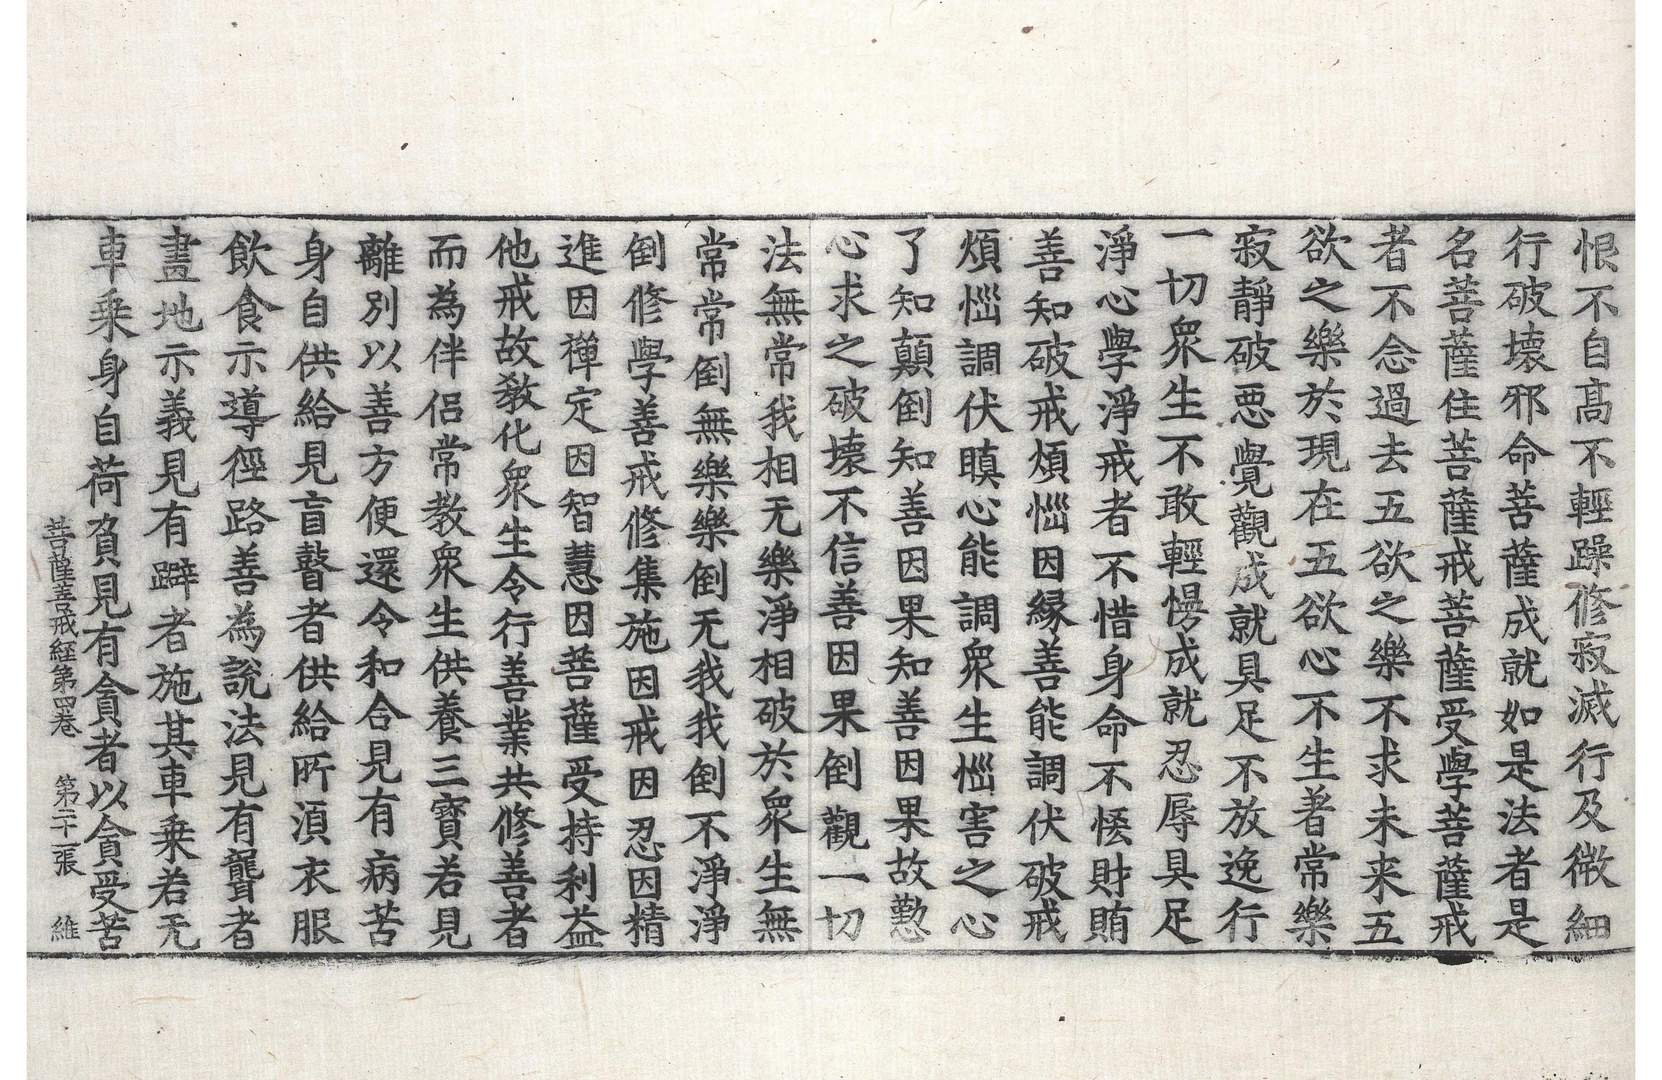 恨不自高不輕躁修寂滅行及微細
行破壞邪命菩薩成就如是法者是
名菩薩住菩薩戒菩薩受學菩薩戒
者不念過去五欲之樂不求未来五
欲之樂於現在五欲心不生著常樂
寂靜破惡覺觀成就具足不放逸行
一切衆生不敢輕慢成就忍辱具足
淨心學淨戒者不惜身命不悋財賄
善知破戒煩惱因縁善能調伏破戒
煩惱調伏瞋心能調衆生惱害之心
了知顛倒知善因果知善因果故懃
心求之破壞不信善因果倒觀一切
法無常我相无樂淨相破於衆生無
常常倒無樂樂倒无我我倒不淨淨
倒修學善戒修集施因戒因忍因精
進因禪定因智慧因菩薩受持利益
他戒故教化衆生令行善業共修善者
而為伴侣常教衆生供養三寶若見
離別以善方便還令和合見有病苦
身自供給見盲瞽者供給所須衣服
飲食示導徑路善為說法見有聾者
畫地示義見有躃者施其車乗若无
車乗身自荷負見有貪者以貪受苦
菩薩善戒経第四卷 第二十一張 維